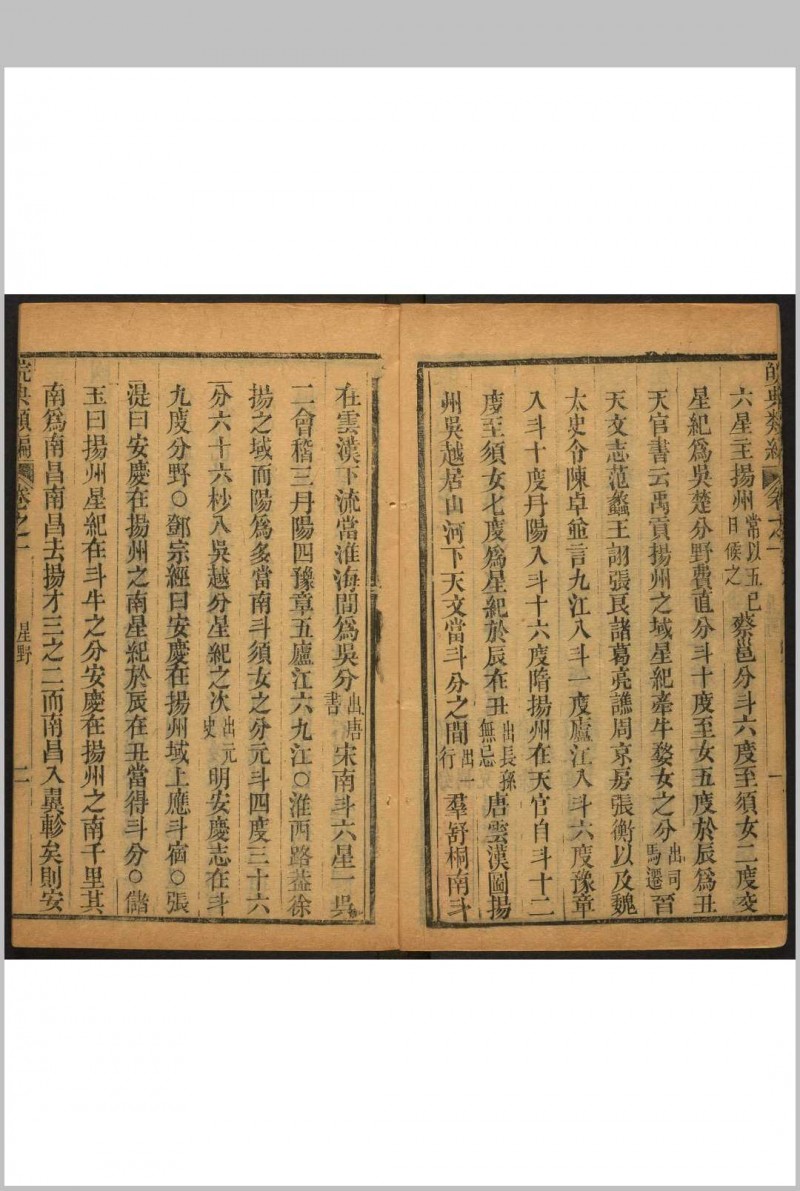 皖典類編 卷之一
一
六星主揚州常以五巳日候之蔡邕分斗六度至須女二度爻
星紀爲吳楚分野費直分斗十度至女五度於辰爲丑
天官書云禹貢揚州之域星紀牽牛婺女之分出司馬遷晉
天文志范蠡王詡張良諸葛亮譙周京房張衡以及魏
太史令陳卓竝言九江入斗一度廬江入斗六度豫章
入斗十度丹陽入斗十六度隋揚州在天官自斗十二
度至須女七度爲星紀於辰在丑出長孫無忌唐雲漢圖揚
州吳越居山河下天文當斗分之間出一行羣舒桐南斗
在雲漢下流當淮海間爲吳分出唐書宋南斗六星一吳
二會稽三丹陽四豫章五廬江六九江○淮西路葢徐
揚之域而陽爲多當南斗須女之分元斗四度三十六
分六十六杪入吳越分星紀之次出元史明安慶志在斗
九度分野○鄧宗經曰安慶在揚州域上應斗宿○張
湜曰安慶在揚州之南星紀於辰在丑當得斗分○儲
玉曰揚州星紀在斗牛之分安慶在揚州之南千里其
南爲南昌南昌去揚才三之二而南昌入翼軫矣則安
皖典類編 卷之一 星野 二